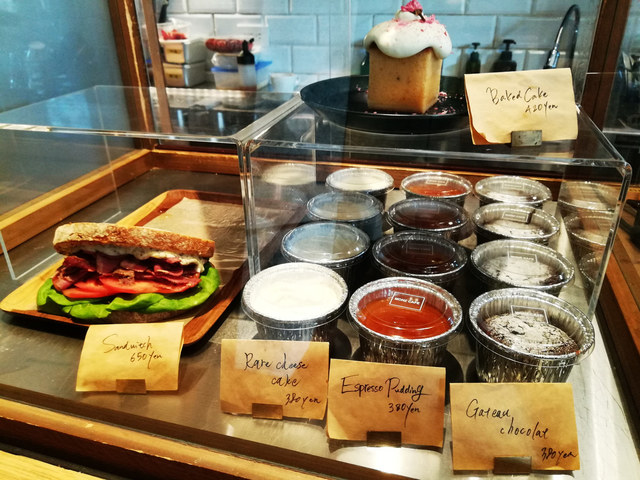 Baked Cake
420yen
Sandwich
650yen
Rare cheese
cake
380yen
Espresso Pudding
380yen
Gateau
chocolat
380yen